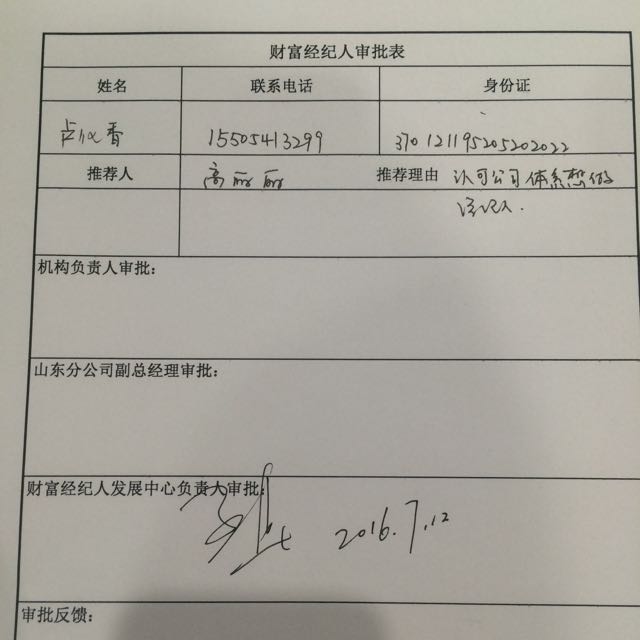 财富经纪人审批表
姓名 联系电话 身份证
香 15505413299 370121195205202022
推荐人 高丽丽 推荐理由 认可公司体系想做
经纪人.
机构负责人审批：
山东分公司副总经理审批：
财富经纪人发展中心负责人审批：
2016.7.12
审批反馈：